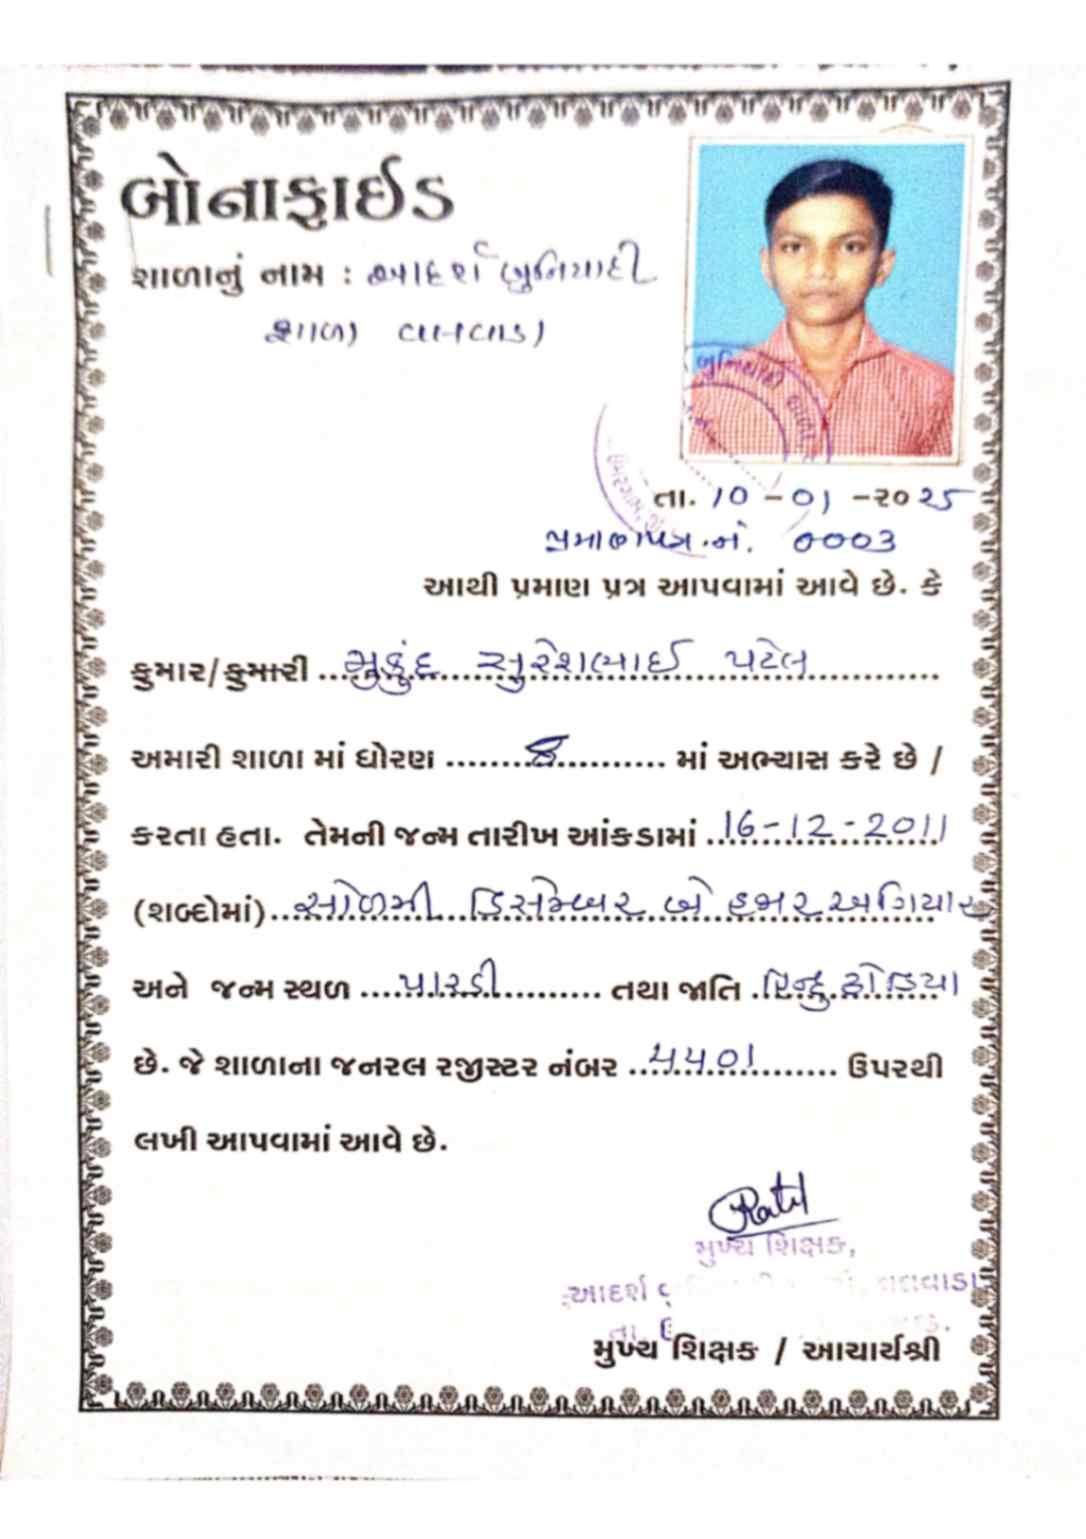 બોનાફાઈડ
શાળાનું નામ : આદર્શ બુનિયાદી
શાળા વલવાડા
બુનિયાદી
ઉમરગામ,
તા. 10 - 01 - ૨૦ ૨5
પ્રમાણપત્ર.નં. 0003
આથી પ્રમાણ પત્ર આપવામાં આવે છે. કે
કુમાર/કુમારી ...મુકુંદ સુરેશભાઈ પટેલ...
અમારી શાળા માં ધોરણ ........8........... માં અભ્યાસ કરે છે /
કરતા હતા. તેમની જન્મ તારીખ આંકડામાં ..16-12-2011
(શબ્દોમાં)..સોળમી ડિસેમ્બર બે હજાર અગિયાર
અને જન્મ સ્થળ ....પારડી............ તથા જાતિ .હિન્દુ ઢોડિયા
છે. જે શાળાના જનરલ રજીસ્ટર નંબર ...૫૫૦1........... ઉપરથી
લખી આપવામાં આવે છે.
મુખ્ય શિક્ષક,
આદર્શ
તા.
મુખ્ય શિક્ષક / આચાર્યશ્રી